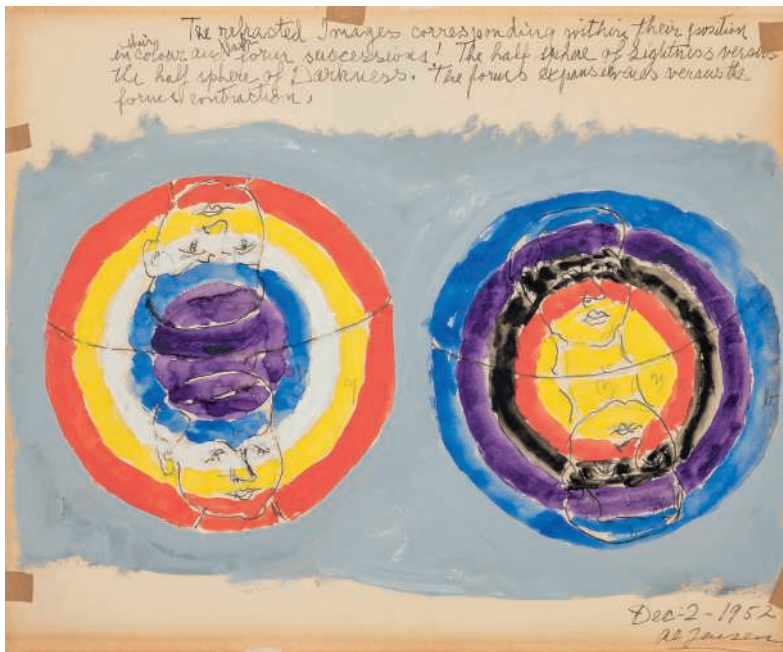 The refracted Images corresponding within their position
their
in colour and form successions! The half sphere of Lightness versus
the half sphere of Darkness. The forms expansiveness versus the
forms contraction.
y
y
Dec-2-1952
Al Jensen